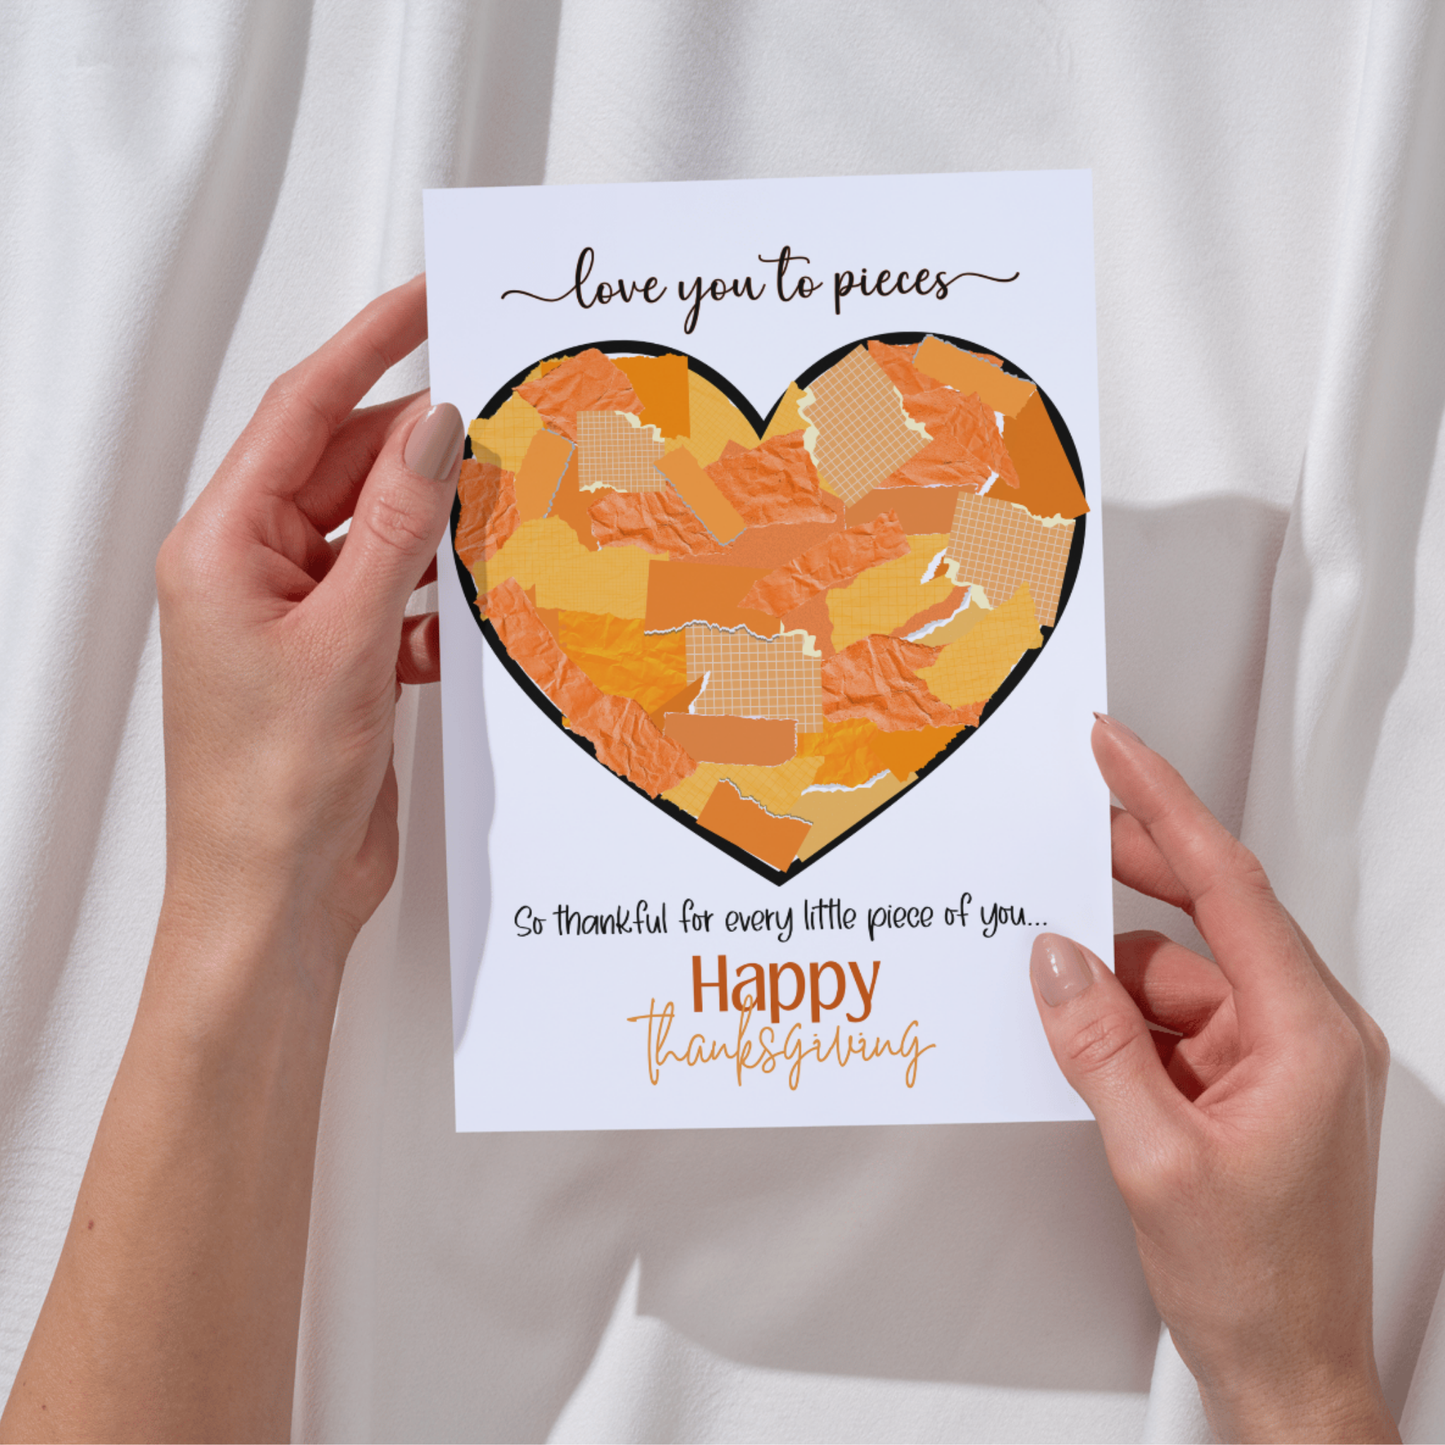 love you to pieces
So thankful for every little piece of you...
Happy
thanksgiving